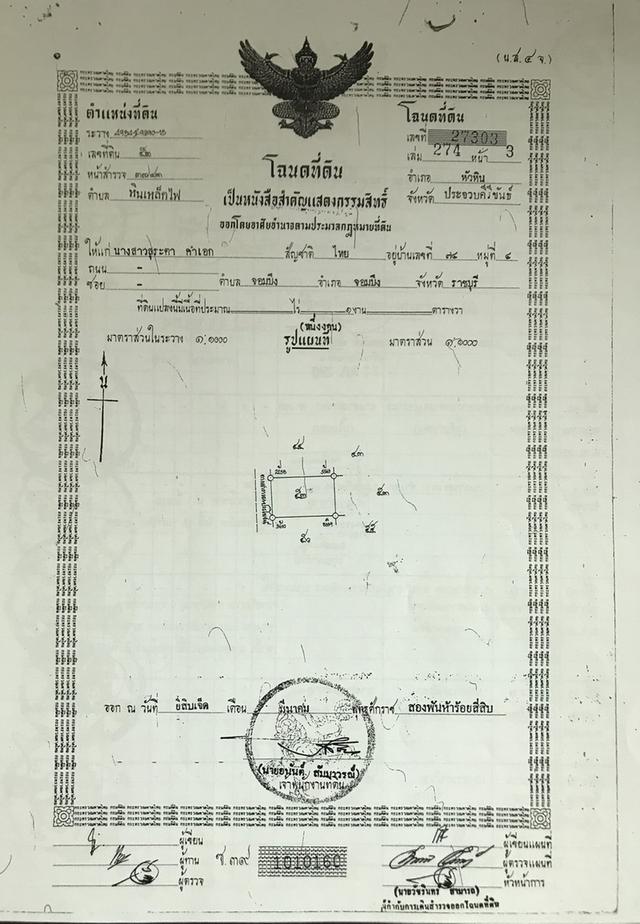 (น.ส.๔ จ.)
ตำแหน่งที่ดิน
ระวาง
เลขที่ดิน ๕๓
หน้าสำรวจ
ตำบล หินเหล็กไฟ
โฉนดที่ดิน
เลขที่ 27303
เล่ม 274 หน้า 3
อำเภอ หัวหิน
จังหวัด ประจวบคีรีขันธ์
โฉนดที่ดิน
เป็นหนังสือสำคัญแสดงกรรมสิทธิ์
ออกโดยอาศัยอำนาจตามประมวลกฎหมายที่ดิน
ให้แก่ นางสาวสุระดา คำเอก สัญชาติ ไทย อยู่บ้านเลขที่ ๗๘ หมู่ที่ ๔
ถนน -
ซอย - ตำบล จอมบึง อำเภอ จอมบึง จังหวัด ราชบุรี
ที่ดินแปลงนี้มีเนื้อที่ประมาณ ไร่ ๑ งาน ตารางวา
(หนึ่งงาน)
มาตราส่วนในระวาง ๑:๑๐๐๐ รูปแผนที่ มาตราส่วน ๑:๑๐๐๐
น
๔๔
๔๓
๕๓
๕๖
๕๕
ออก ณ วันที่ ยี่สิบเจ็ด เดือน มีนาคม พุทธศักราช สองพันห้าร้อยสี่สิบ
(นายอนันต์ สัมมาวรณ์)
เจ้าพนักงานที่ดิน
ผู้เขียน
ผู้ทาน
ผู้ตรวจ
ซ.๓๙ 1010160
ผู้เขียนแผนที่
ผู้ตรวจแผนที่
หัวหน้าการ
(นายวัจรินทร์ สามารถ)
ผู้กำกับการเดินสำรวจออกโฉนดที่ดิน